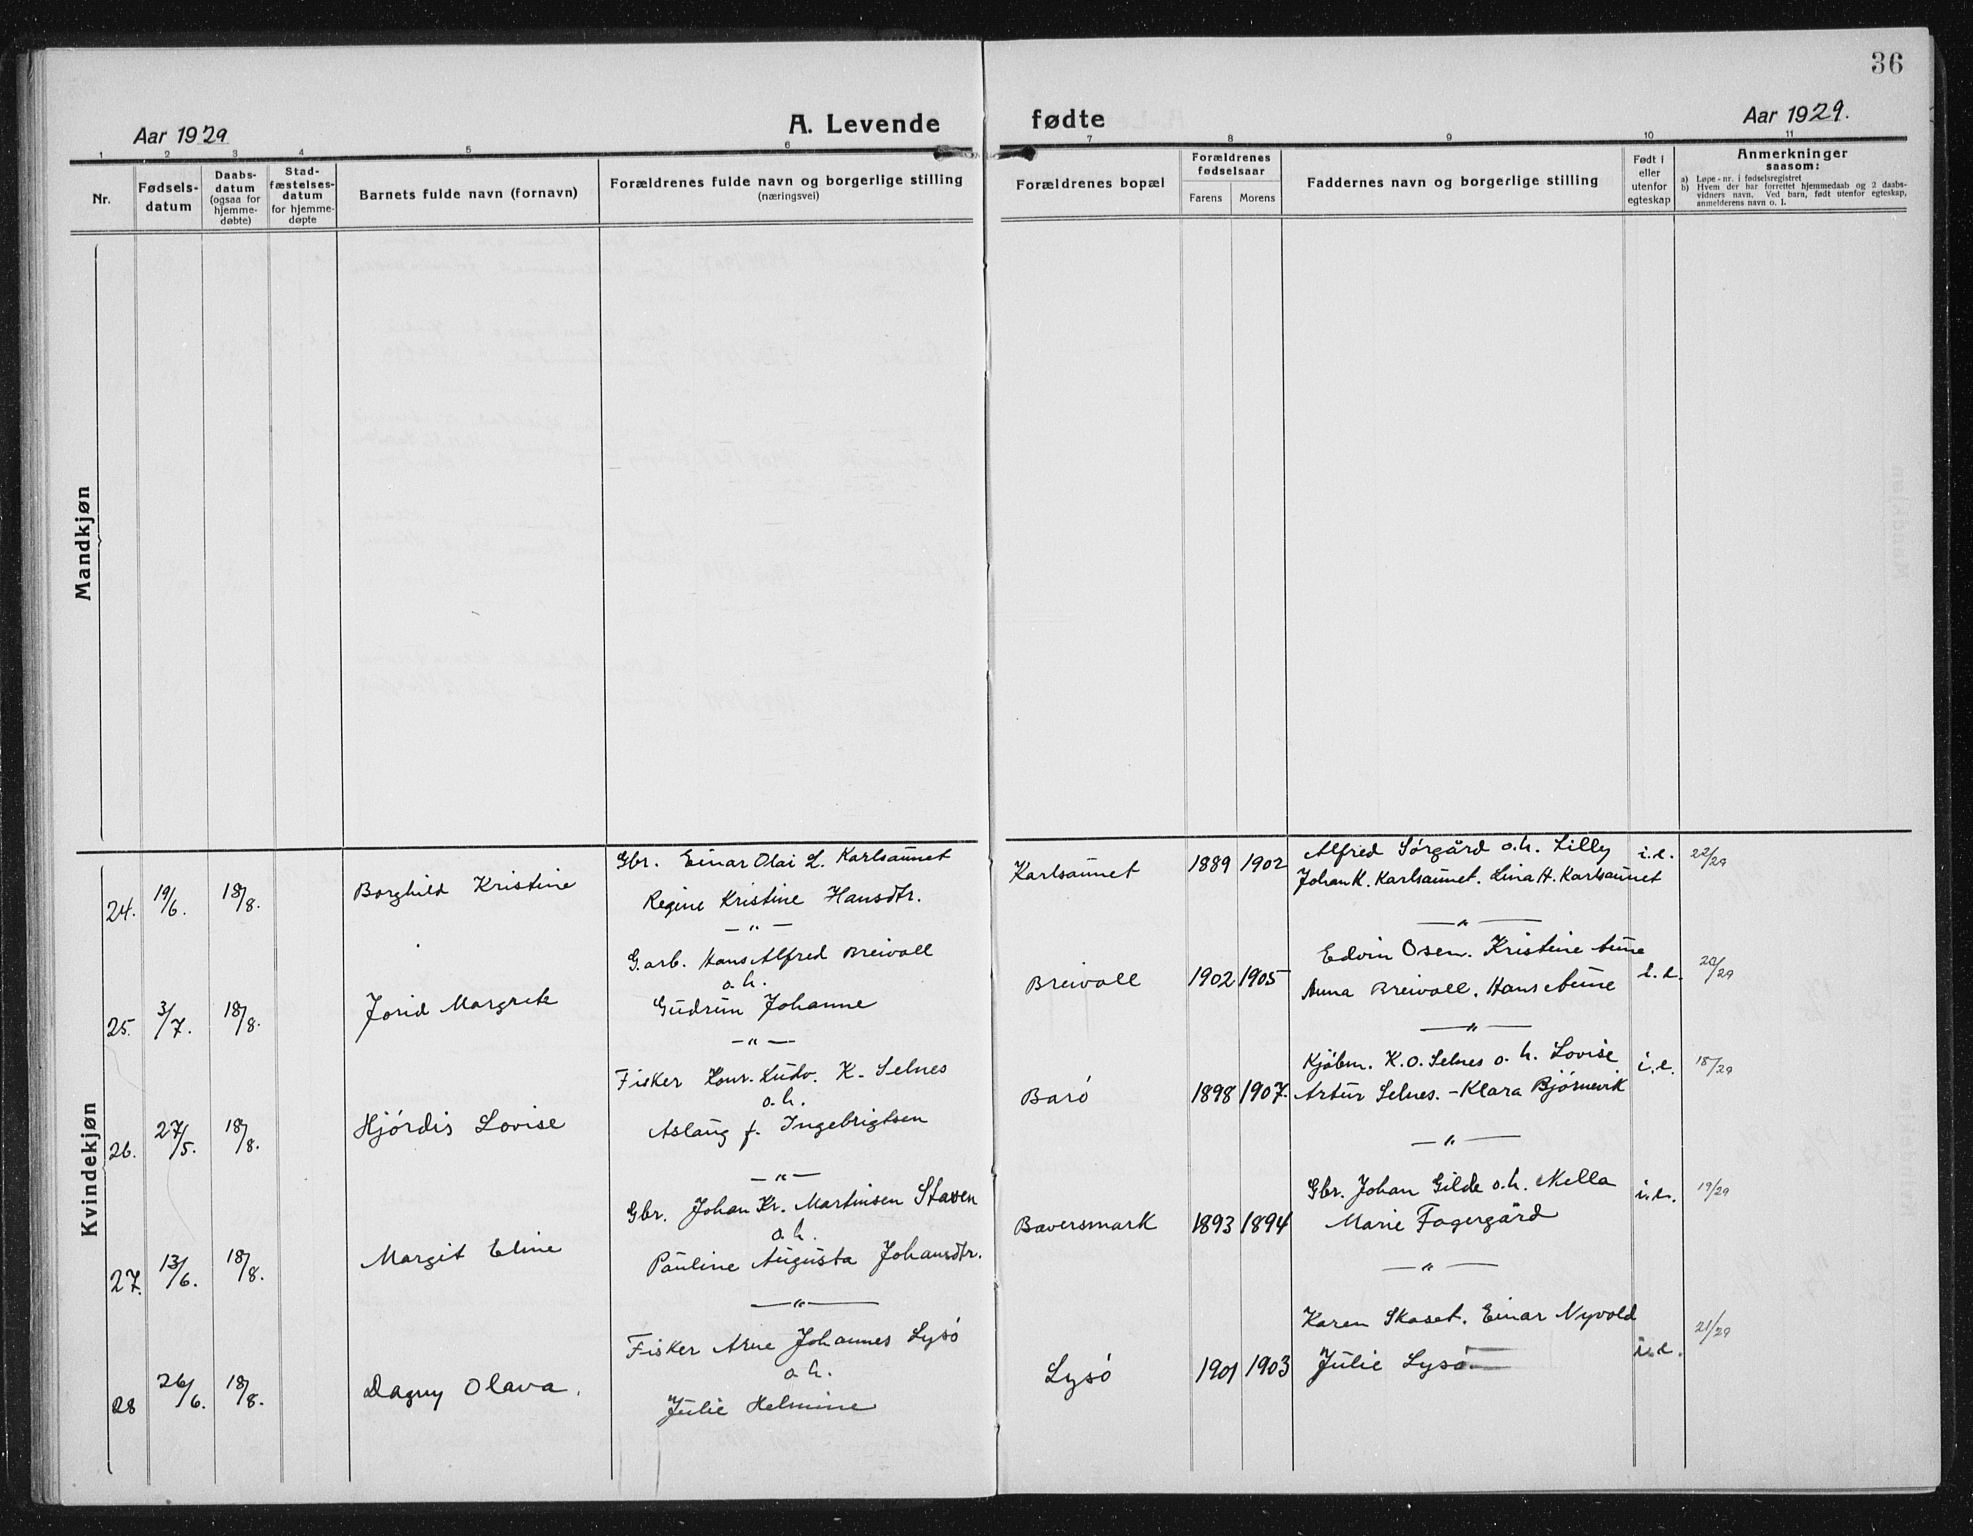 36
Aar 1929
A. Levende fødte
Aar 1929.
1 2 3 4 5 6 7 8 9 10 11
Nr.
Fødsels-
datum
Daabs-
datum
(ogsaa for
hjemme-
døbte)
Stad-
fæstelses-
datum
for hjemme-
døpte
Barnets fulde navn (fornavn)
Forældrenes fulde navn og borgerlige stilling
(næringsvei)
Forældrenes bopæl
Forældrenes
fødselsaar
Farens
Morens
Faddernes navn og borgerlige stilling
Født i
eller
utenfor
egteskap
Anmerkninger
saasom:
a) Løpe-nr. i fødselsregistret
b) Hvem der har forrettet hjemmedaab og 2 daabs-
vidners navn. Ved barn, født utenfor egteskap,
anmelderens navn o. l.
Mandkjøn
Kvindekjøn
24. 19/6. 18/8. Borghild Kristine
Gbr. Einar Olai L. Karlsaunet
Regine Kristine Hansdtr.
Karlsaunet 1889 1902
Alfred Sørgård o.h. Lilly
Johan K. Karlsaunet. Lina H. Karlsaunet
i.e. 22/29
— " —
25. 3/7. 18/8. Jorid Margrete
G.arb. Hans Alfred Breivoll
o.h.
Gudrun Johanne
Breivoll 1902 1905
Edvin Osen. Kristine Aune
Anna Breivoll. Hans Aune
i.e. 20/29
— " —
26. 27/5. 18/8. Hjördis Lovise
Fisker Konr. Ludv. K. Selnes
o.h.
Aslaug f. Ingebrigtsen
Barö 1898 1907.
Kjøbm. K.O. Selnes o.h. Lovise
Artur Selnes. - Klara Bjørnevik
i.e. 18/29
— " —
27. 13/6. 18/8. Margit Eline
Gbr. Johan Kr. Martinsen Staven
o.h.
Pauline Augusta Johansdtr.
Bæversmark 1893 1894
Gbr. Johan Gilde o.h. Mella
Marie Fagergård
i.e. 19/29
— " —
28 26/6. 18/8. Dagny Olava.
Fisker Arne Johannes Lysö
o.h.
Julie Helmine
Lysö 1901 1903
Karen Skaset. Einar Nyvold
Julie Lysö
i.e. 21/29